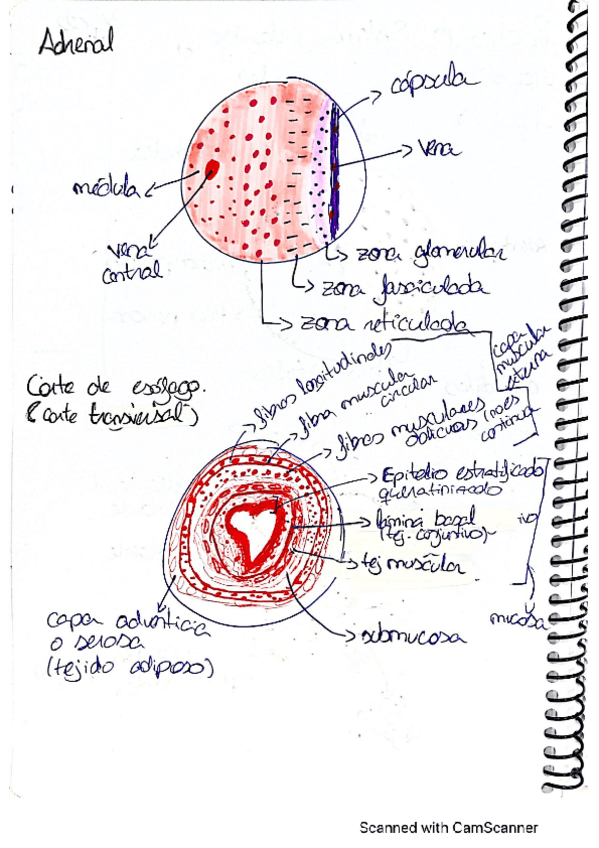 Adrenal
cápsula
vena
médula
vena
central
zona glomerular
zona fasciculada
zona reticulada
capa
muscular
externa
Corte de esófago.
(corte transversal)
fibras longitudinales
fibra muscular
circular
fibras musculares
oblicuas (no es
continua)
Epitelio estratificado
queratinizado
lámina basal
(tej. conjuntivo)
tej muscular
mucosa
submucosa
capa adventicia
o serosa
(tejido adiposo)
Scanned with CamScanner